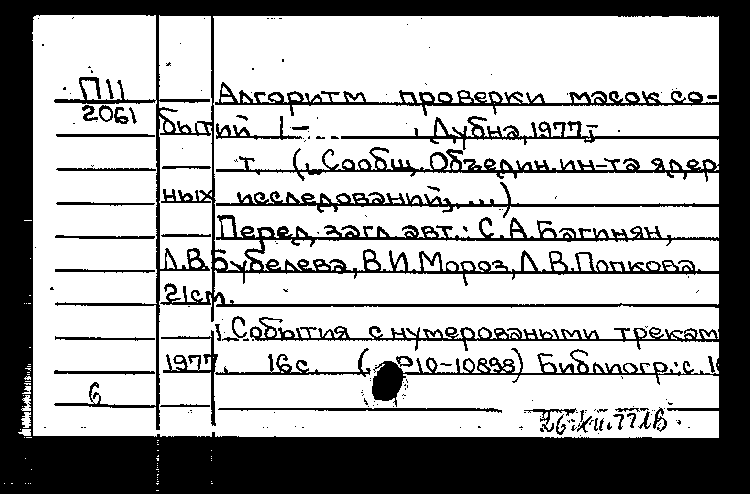 П11
2061
Алгоритм проверки масок со-
бытий. 1— , Дубна, 1977-
т. ( , Сообщ. Объедин. ин-та ядер
ных исследований, ...)
Перед загл. авт.: С.А.Багинян,
Л.В.Бубелева, В.И.Мороз, Л.В.Попкова.
21см.
1.События с нумероваными трекам
1977. 16с. ( P10-10898) Библиогр.: с. 16
6
26.XII.77